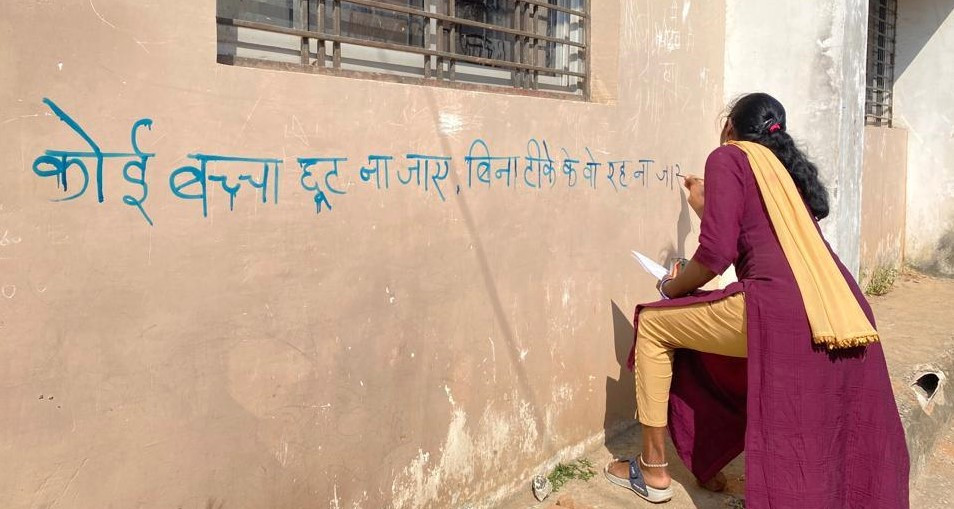 कोई बच्चा छूट ना जाए, बिना टीके के वो रह ना